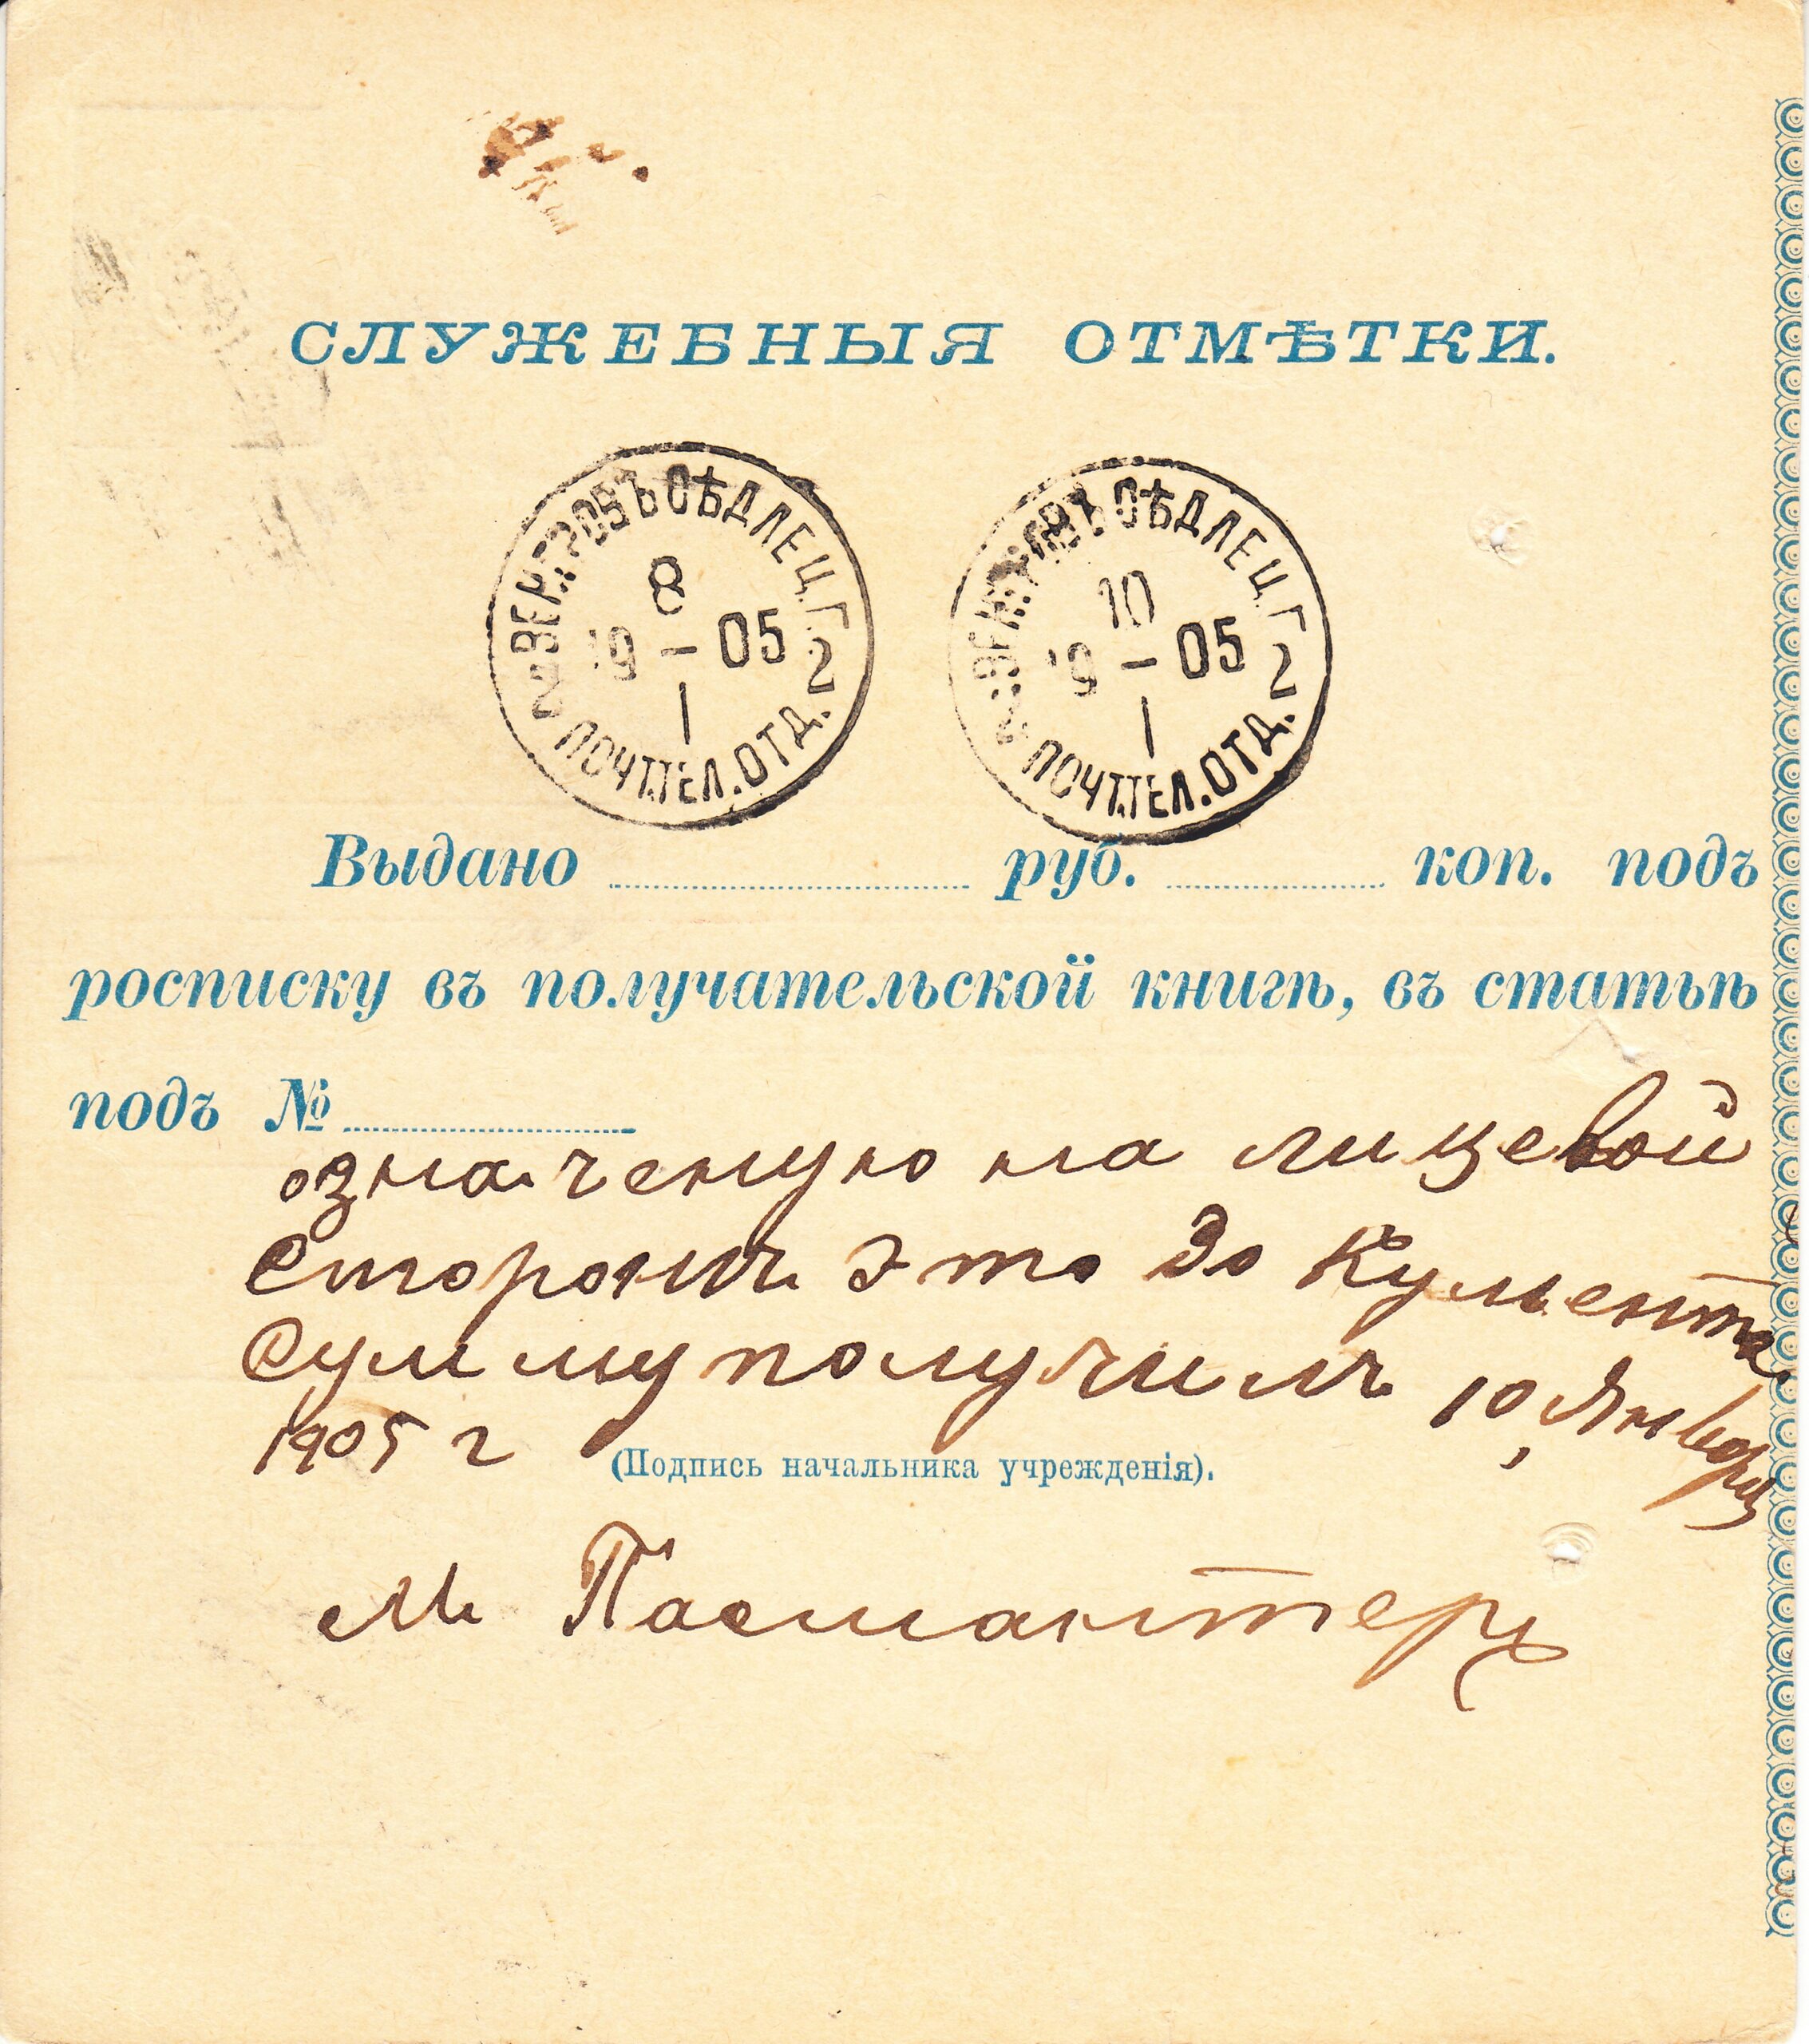 СЛУЖЕБНЫЯ ОТМѢТКИ.
ВЕНГРОВЪ СѢДЛЕЦ. Г.
8
19 - 05
I
2 ПОЧТ.ТЕЛ.ОТД. 2
ВЕНГРОВЪ СѢДЛЕЦ. Г.
10
19 - 05
I
2 ПОЧТ.ТЕЛ.ОТД. 2
Выдано руб. коп. подъ
росписку въ получательской книгѣ, въ статьѣ
подъ №
означеную на лицевой
сторонѣ это документа
сумму получилъ 10 Января
1905 г
(Подпись начальника учрежденія).
М